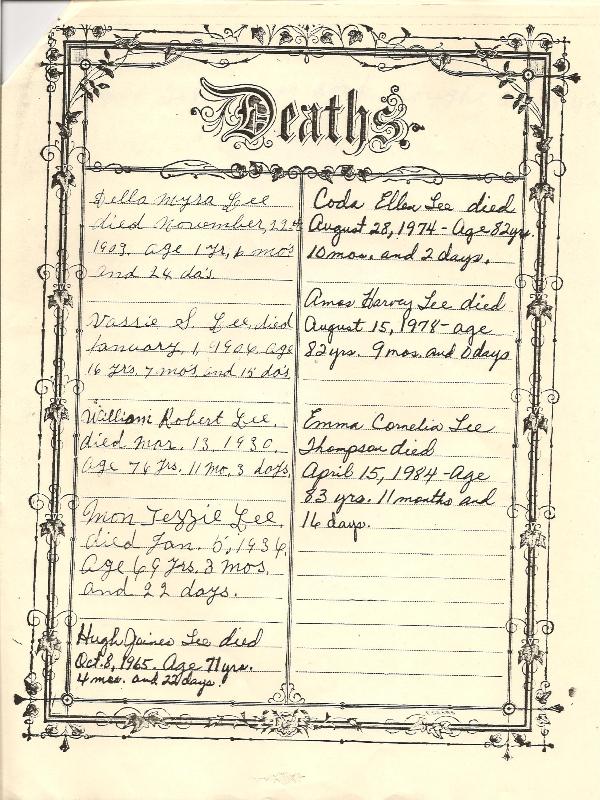 Deaths
Della Myra Lee
died November, 22nd
1903. age 1 yr, mo's
and 24 da's
Vassie S. Lee, died
January, 1, 1906, age
16 yrs, 7 mo's and 15 da's
William Robert Lee,
died Mar. 13, 1930,
Age 76 yrs. 11 mo, 3 days,
Mon Tezzie Lee,
died Jan. 1936,
Age 69 yrs. 3 mos,
and 22 days.
Hugh Lee died
Oct. 8, 1965. Age 71 yrs.
4 mos. and 22 days.
Coda Ellen Lee died
August 28, 1974 - Age 82 yrs.
10 mos. and 2 days.
Amos Harvey Lee died
August 15, 1978 - age
82 yrs. 9 mos. and 0 days
Emma Cornelia Lee
Thompson died
April 15, 1984 - Age
83 yrs. 11 months and
16 days.